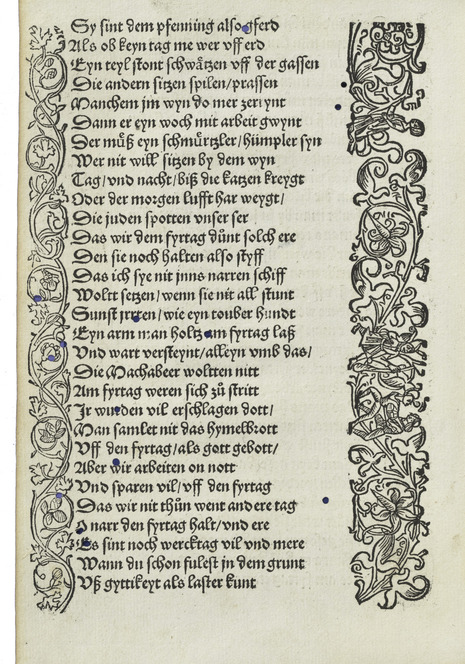 Sy sint dem pfenning also gferd
Als ob keyn tag me wer vff erd
Eyn teyl stont schwätzen vff der gassen
Die andern sitzen spilen/prassen
Manchem jm wyn do mer zerrynt
Dann er eyn woch mit arbeit gwynt
Der můß eyn schmürtzler/hümpler syn
Wer nit will sitzen by dem wyn
Tag/vnd nacht/biß die katzen kreygt
Oder der morgen lufft har weygt/
Die juden spotten vnser ser
Das wir dem fyrtag dünt solch ere
Den sie noch halten also styff
Das ich sye nit jnns narren schiff
Woltt setzen/wenn sie nit all stunt
Sunst jrrten/wie eyn touber hundt
Eyn arm man holtz am fyrtag laß
Vnd wart versteynt/alleyn vmb das/
Die Machabeer woltten nitt
Am fyrtag weren sich zů stritt
Jr wurden vil erschlagen dott/
Man samlet nit das hymelbrott
Vff den fyrtag/als gott gebott/
Aber wir arbeiten on nott
Vnd sparen vil/vff den fyrtag
Das wir nit thůn went andere tag
O narr den fyrtag halt/vnd ere
Es sint noch wercktag vil vnd mere
Wann du schon fulest jn dem grunt
Vß gyttikeyt als laster kunt